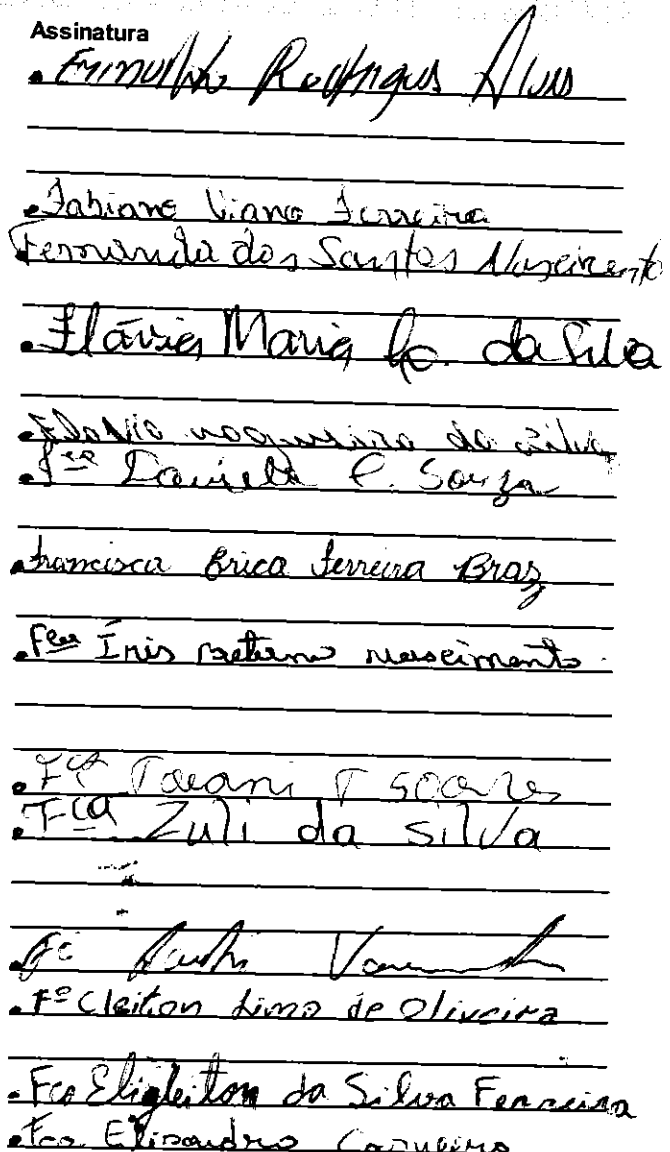 Assinatura
Rodrigues Alves
Fabiano Viana Ferreira
Fernanda dos Santos Nascimento
Flávia Maria da Silva
Flavio nogueira da Silva
Daniela C. Souza
Francisca Erica Ferreira Braz
Fca Íris Nascimento
Fca T Soares
Fca Zuli da Silva
Fº Cleiton Lima de Oliveira
Fco Eligleiton da Silva Ferreira
Fco Elisandro Carneiro